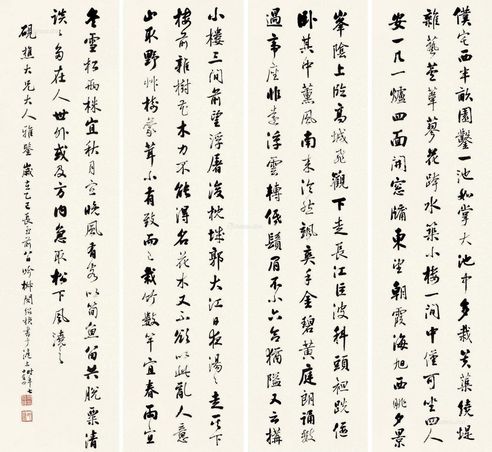 僕宅西半畝園鑿一池如掌大池中多栽芙蕖繞堤
雜藝荳華蓼花跨水築小樓一間中僅可坐四人
安一几一爐四面開窗牖東望朝霞海旭西眺夕景
峯陰上臨高城飛觀下走長江巨波科頭裸跣偃
卧其中薰風南来泠然颯爽手金碧黃庭朗誦數
過市座非遠浮雲樽俎鬚眉不小六合猶隘又云搆
小樓三間前望浮屠後枕城郭大江日夜湯〻走其下
樓前雜樹花木力不能得名花木又不欲以此亂人意
止取野卉樹蒙茸小有致而已栽竹數竿宜春雨宜
冬雪松兩株宜秋月宜晚風有客以筍魚留共脫粟清
談〻多在人世外或及方内急取松下風澆之
硯樵大兄大人雅鑒 歲在乙巳長至前 時年七